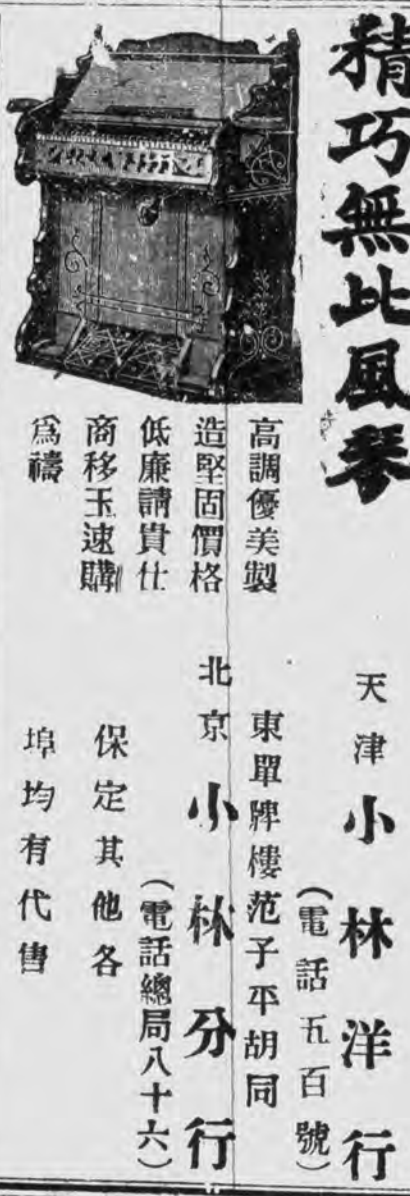 精巧無比風琴
高調優美製
造堅固價格
低廉請貴仕
商移玉速購
爲禱
天津小林洋行
(電話五百號)
東單牌樓范子平胡同
北京小林分行
(電話總局八十六)
保定其他各
埠均有代售